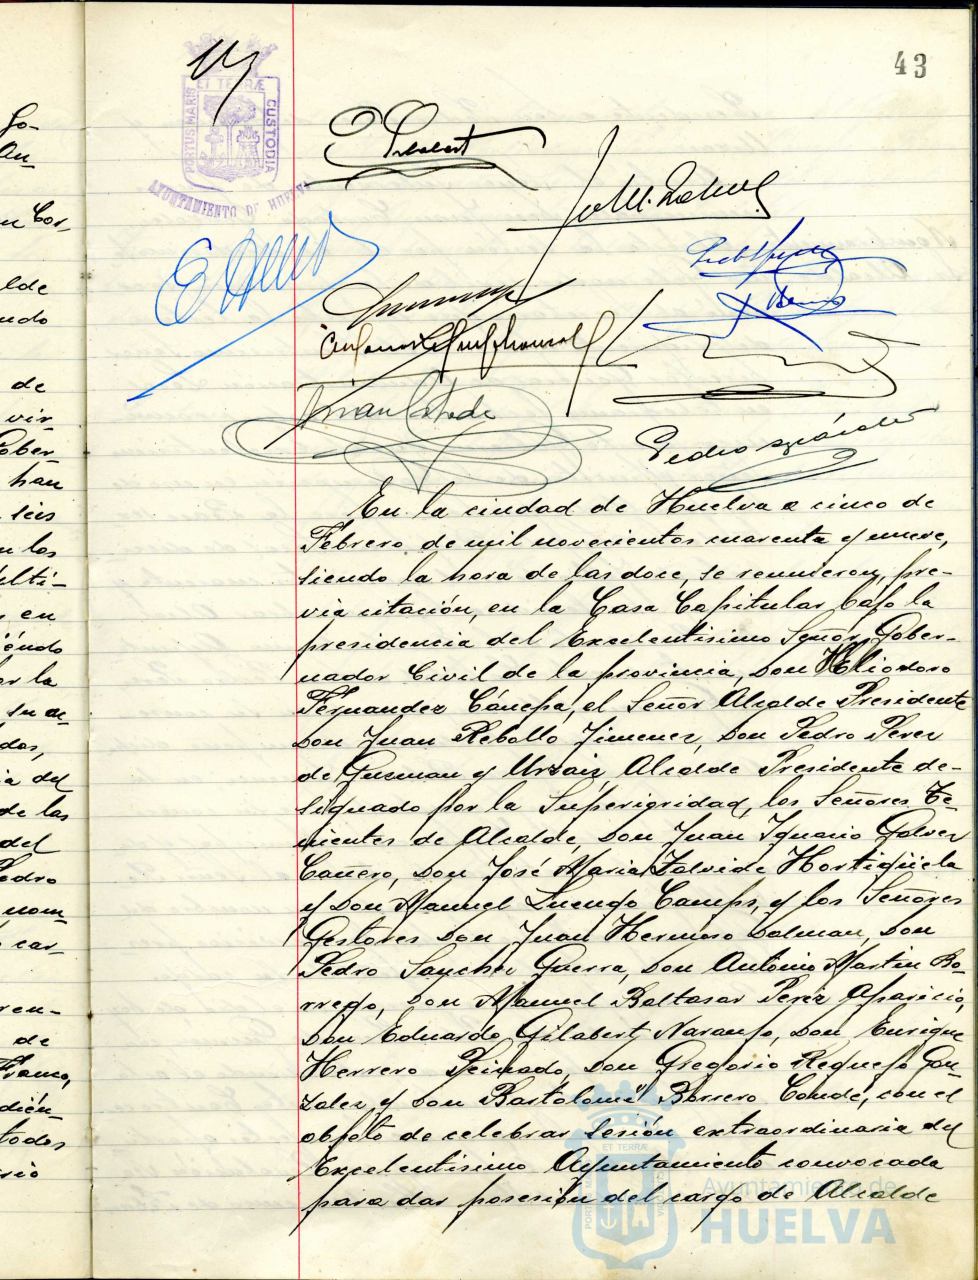 43
PORTUS MARIS ET TERRÆ CUSTODIA
AYUNTAMIENTO DE HUELVA
En la ciudad de Huelva a cinco de
Febrero de mil novecientos cuarenta y nueve,
siendo la hora de las doce, se reunieron, pre-
via citación, en la Casa Capitular bajo la
presidencia del Excelentísimo Señor Gober-
nador Civil de la provincia, Don Heliodoro
Fernandez Cánepa, el Señor Alcalde Presidente
Don Juan Rebollo Jimenez, Don Pedro Perez
de Guzman y Urzaiz, Alcalde Presidente de-
signado por la Superioridad, los Señores Te-
nientes de Alcalde, Don Juan Ignacio Galvez
Cañero, Don José Maria Zalvide Hortigüela
y Don Manuel Luengo Camps, y los Señores
Gestores Don Juan Hermoso Dalman, Don
Pedro Sanchez Guerra, Don Antonio Martin Bo-
rrego, Don Manuel Baltasar Perez Aparicio,
Don Eduardo Gilabert Naranjo, Don Enrique
Herrero Peinado, Don Gregorio Requejo Gon-
zalez, y Don Bartolomé Borrero Conde, con el
objeto de celebrar Sesión extraordinaria del
Excelentísimo Ayuntamiento convocada
para dar posesión del cargo de Alcalde
Ayuntamiento de
HUELVA